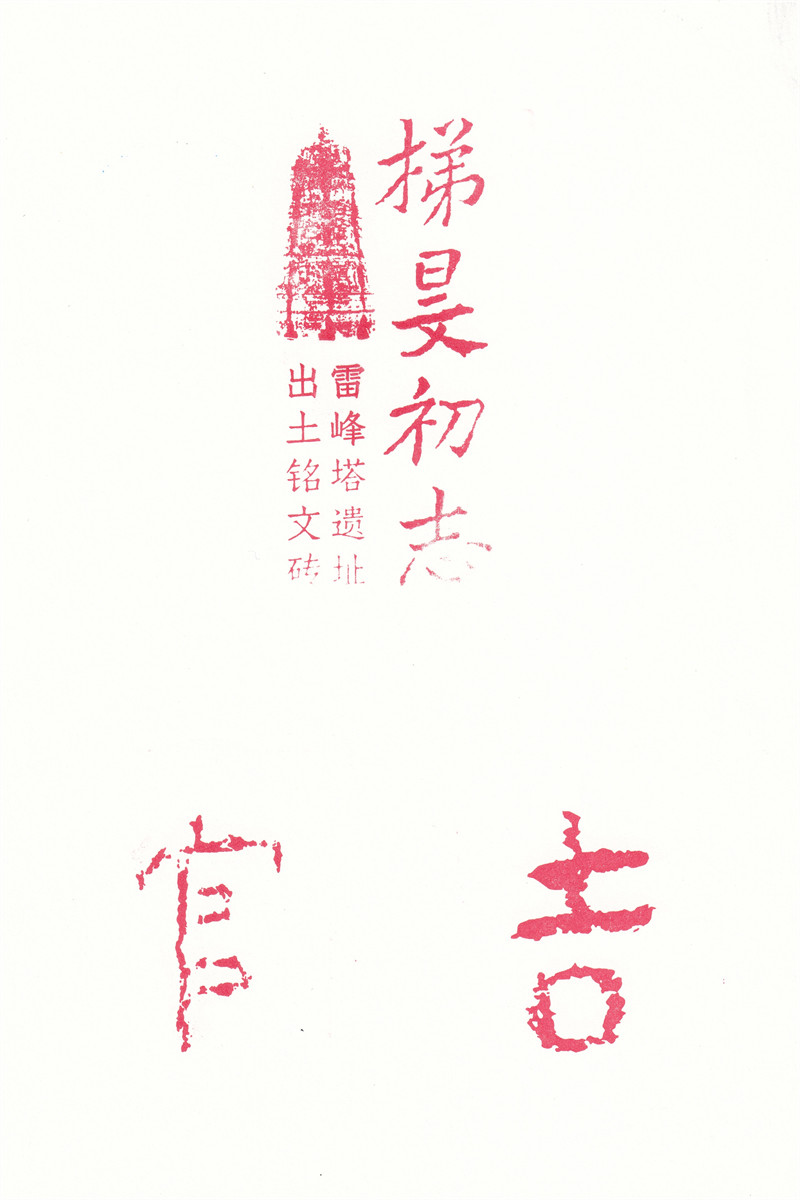 梯旻初志
雷峰塔遗址
出土铭文砖
吉
官